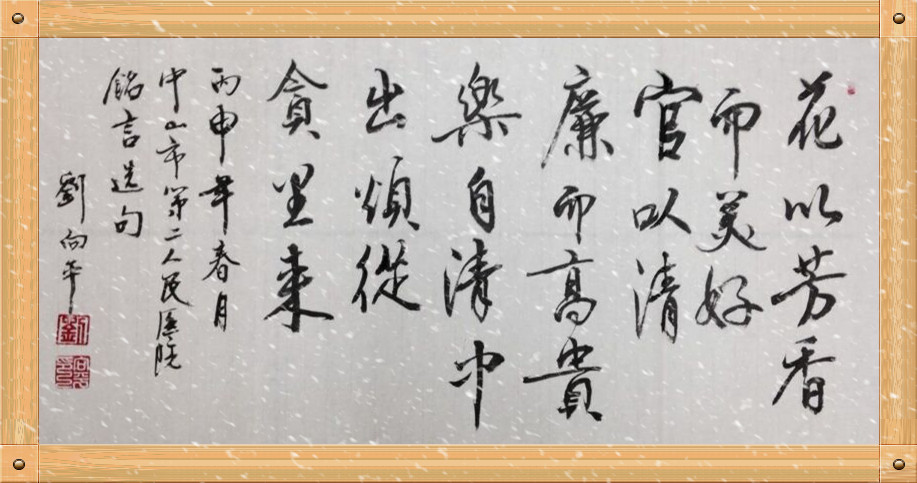 花以芳香
而美好
官以清
廉而高貴
樂自清中
出煩從
貪里来
丙申年春月
中山市第二人民医院
銘言选句
劉向平
劉